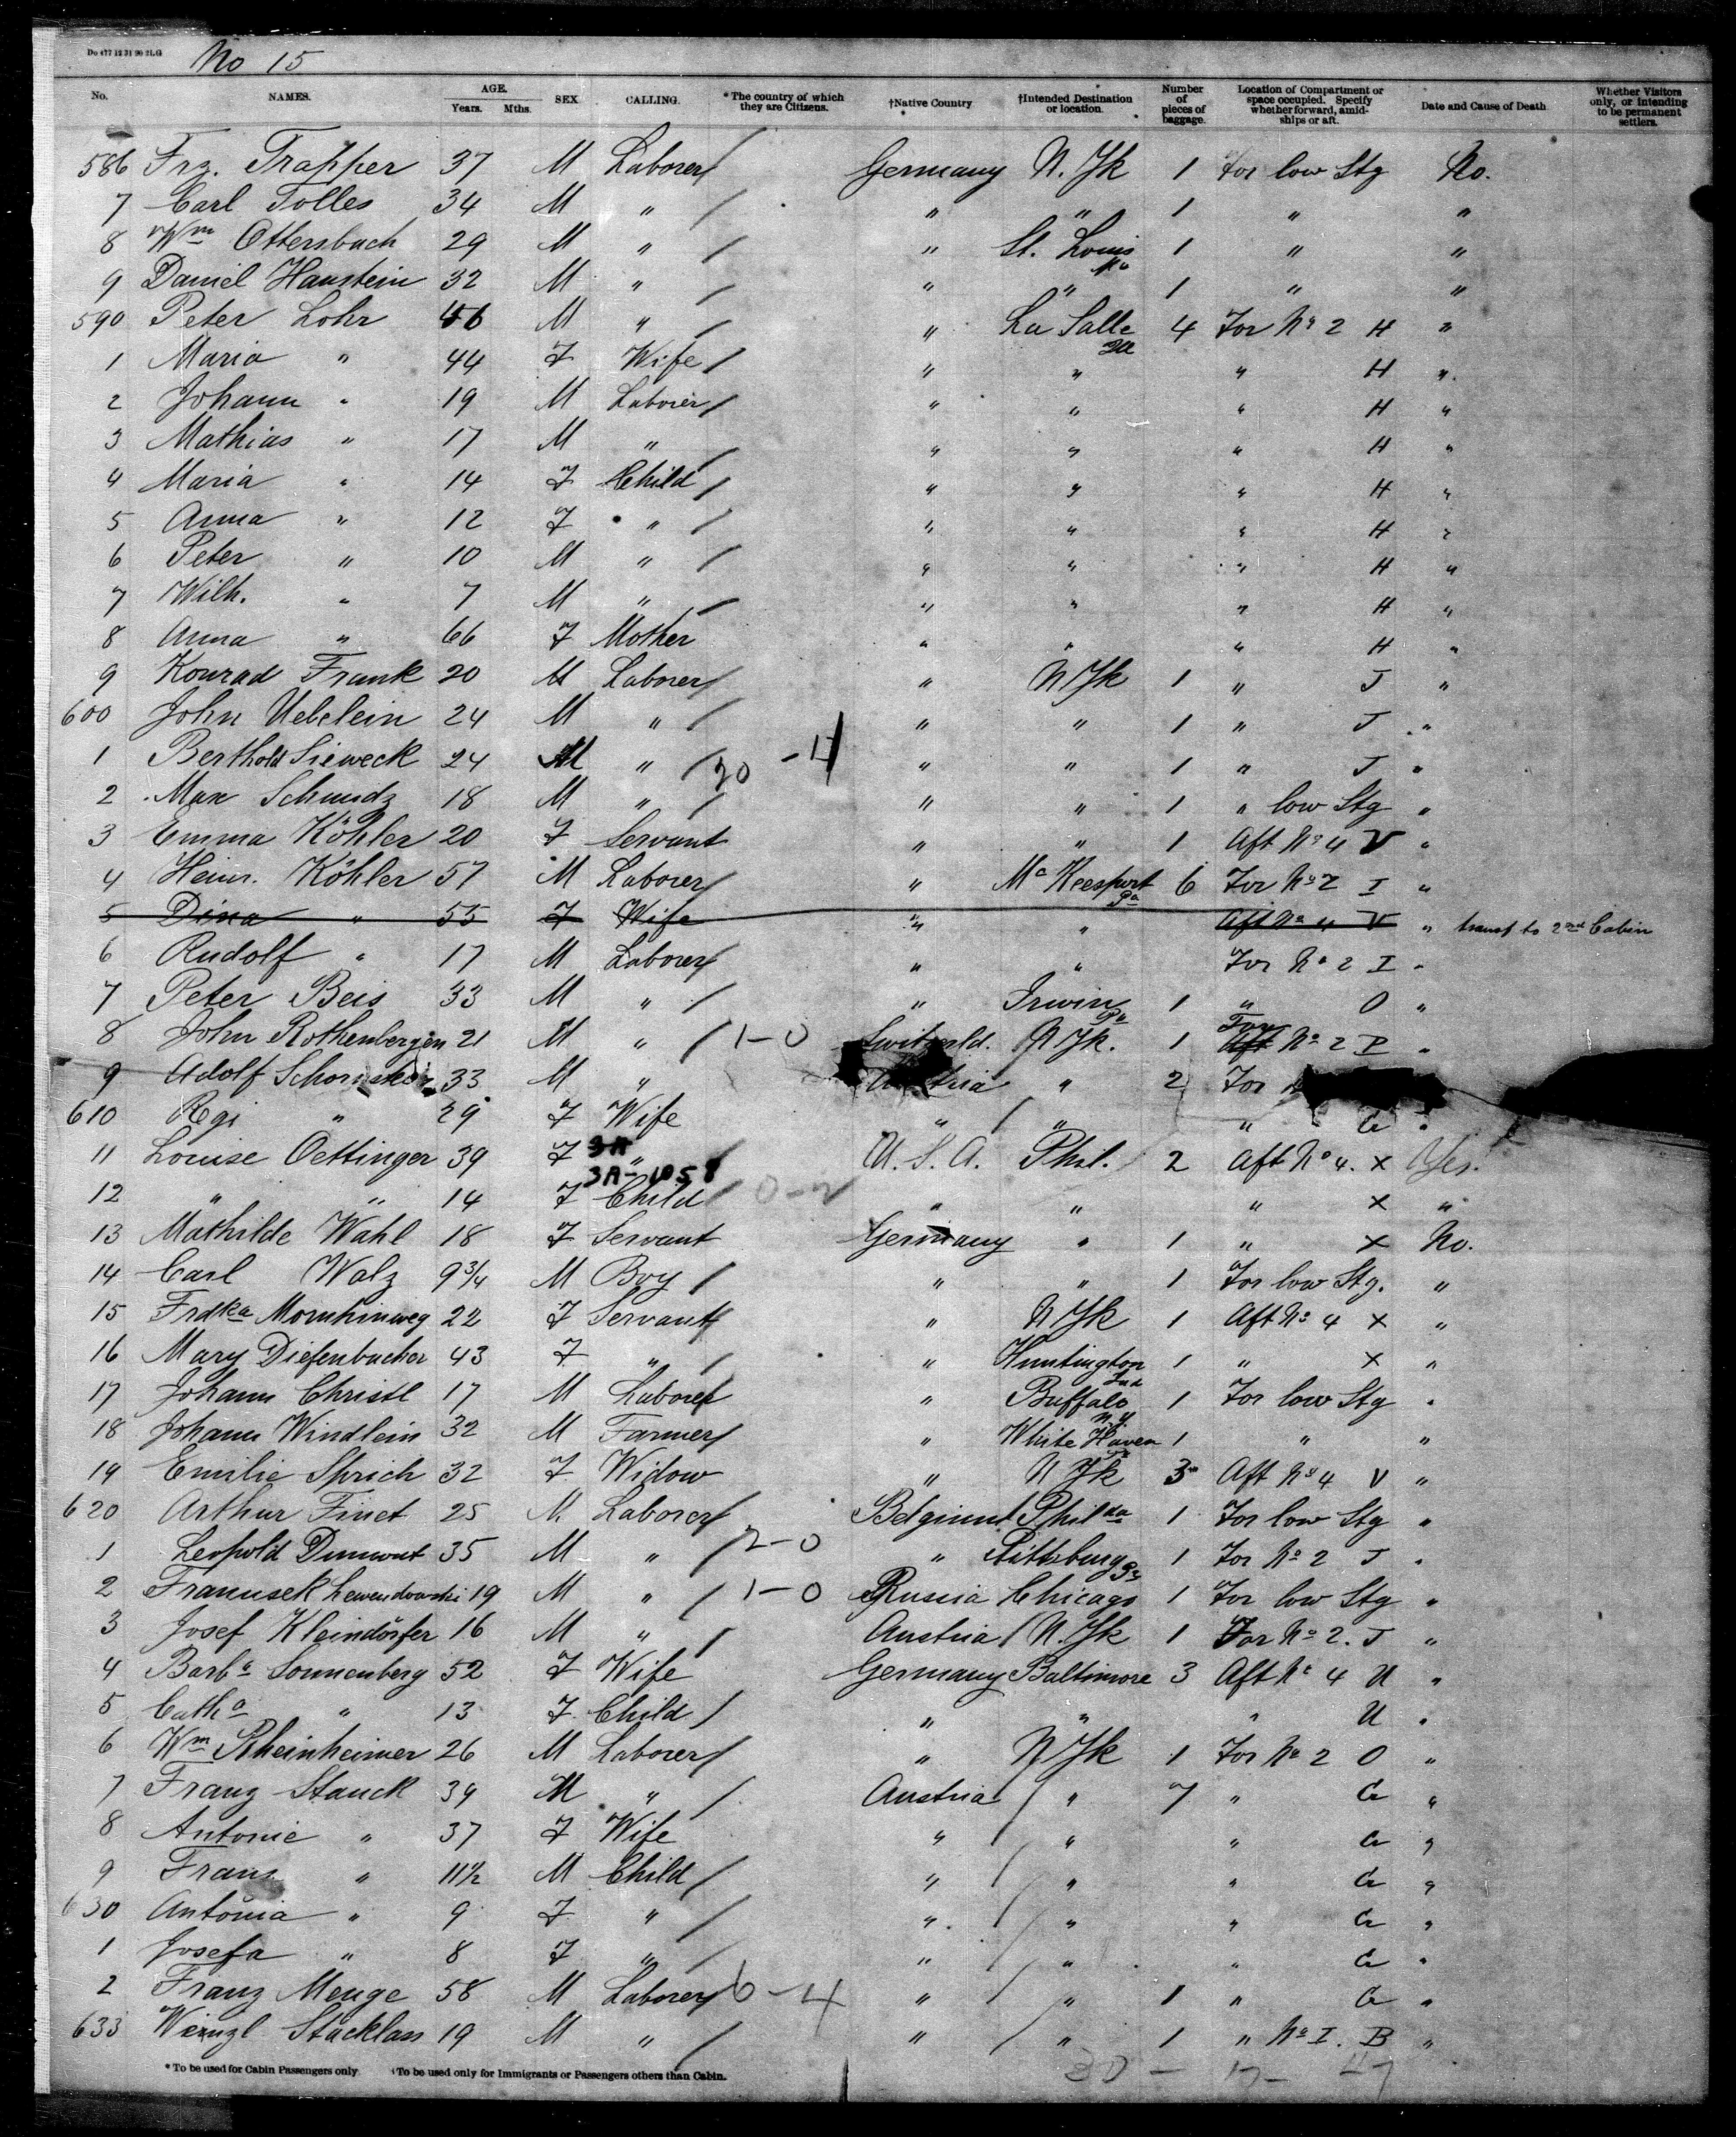 Do 477 12 31 90 2LG
No 15
No. NAMES. AGE. Years. Mths. SEX CALLING. *The country of which they are Citizens. †Native Country †Intended Destination or location. Number of pieces of baggage. Location of Compartment or space occupied. Specify whether forward, amidships or aft. Date and Cause of Death Whether Visitors only, or intending to be permanent settlers.
586 Frz. Trapper 37 M Laborer Germany N. Yk 1 For low Stg No.
7 Carl Tolles 34 M " " " 1 " "
8 Wm Ottersbach 29 M " " St. Louis Mo 1 " "
9 Daniel Haustein 32 M " " " 1 " "
590 Peter Lohr 46 M " " La Salle Ill 4 For No 2 H "
1 Maria " 44 F Wife " " " H "
2 Johann " 19 M Laborer " " " H "
3 Mathias " 17 M " " " " H "
4 Maria " 14 F Child " " " H "
5 Anna " 12 F " " " " H "
6 Peter " 10 M " " " " H "
7 Wilh. " 7 M " " " " H "
8 Anna " 66 F Mother " " " H "
9 Konrad Frank 20 M Laborer " N Yk 1 " J "
600 John Uebelein 24 M " " " 1 " J "
1 Berthold Sieweck 24 M " 20 - 4 " " 1 " J "
2 Max Schmidz 18 M " " " 1 " low Stg "
3 Emma Köhler 20 F Servant " " 1 Aft No 4 V "
4 Heinr. Köhler 57 M Laborer " Mc Keesport Pa 6 For No 2 I "
5 Dina " 55 F Wife " " Aft No 4 V " transf to 2nd Cabin
6 Rudolf " 17 M Laborer " " For No 2 I "
7 Peter Beis 33 M " " Irwin Pa 1 " O "
8 John Rothenbergen 21 M " 1-0 Switzerld. N Yk. 1 For Aft No 2 P "
9 Adolf 33 M " Austria " 2 For
610 Regi " 29 F Wife " " " G "
11 Louise Oettinger 39 F 3A " U. S. A. Phil. 2 Aft No 4. X Yes.
3A-1058
12 " " 14 F Child " " " X "
13 Mathilde Wahl 18 F Servant Germany " 1 " X No.
14 Carl Walz 9 3/4 M Boy " " 1 For low Stg. "
15 Frdka Mornhinweg 22 F Servant " N Yk 1 Aft No 4 X "
16 Mary Diefenbacher 43 F " " Huntington Ind 1 " X "
17 Johann Christl 17 M Laborer " Buffalo N.Y. 1 For low Stg "
18 Johann Windlein 32 M Farmer " White Haven Pa 1 " "
19 Emilie Sprich 32 F Widow " N Yk 3 Aft No 4 V "
620 Arthur Finet 25 M. Laborer Belgium Philda 1 For low Stg "
1 Leopold Dumont 35 M " 2-0 " Pittsburg Pa 1 For No 2 J "
2 Franusek Lewendowski 19 M " 1-0 Russia Chicago 1 For low Stg "
3 Josef Kleindörfer 16 M " Austria N. Yk 1 For No 2. J "
4 Barba Sonnenberg 52 F Wife Germany Baltimore 3 Aft No 4 U "
5 Catha " 13 F Child " " " U "
6 Wm Rheinheimer 26 M Laborer " N Yk 1 For No 2 O "
7 Franz Stanck 39 M " Austria " 7 " G "
8 Antonie " 37 F Wife " " " G "
9 Franz " 11 1/2 M Child " " " G "
630 Antonia " 9 F " " " " G "
1 Josefa " 8 F " " " " G "
2 Franz Menge 58 M Laborer 6-4 " " 1 " G "
633 Wenzl Stacklass 19 M " " " 1 " No I. B "
30 - 17 - 47
*To be used for Cabin Passengers only †To be used only for Immigrants or Passengers others than Cabin.